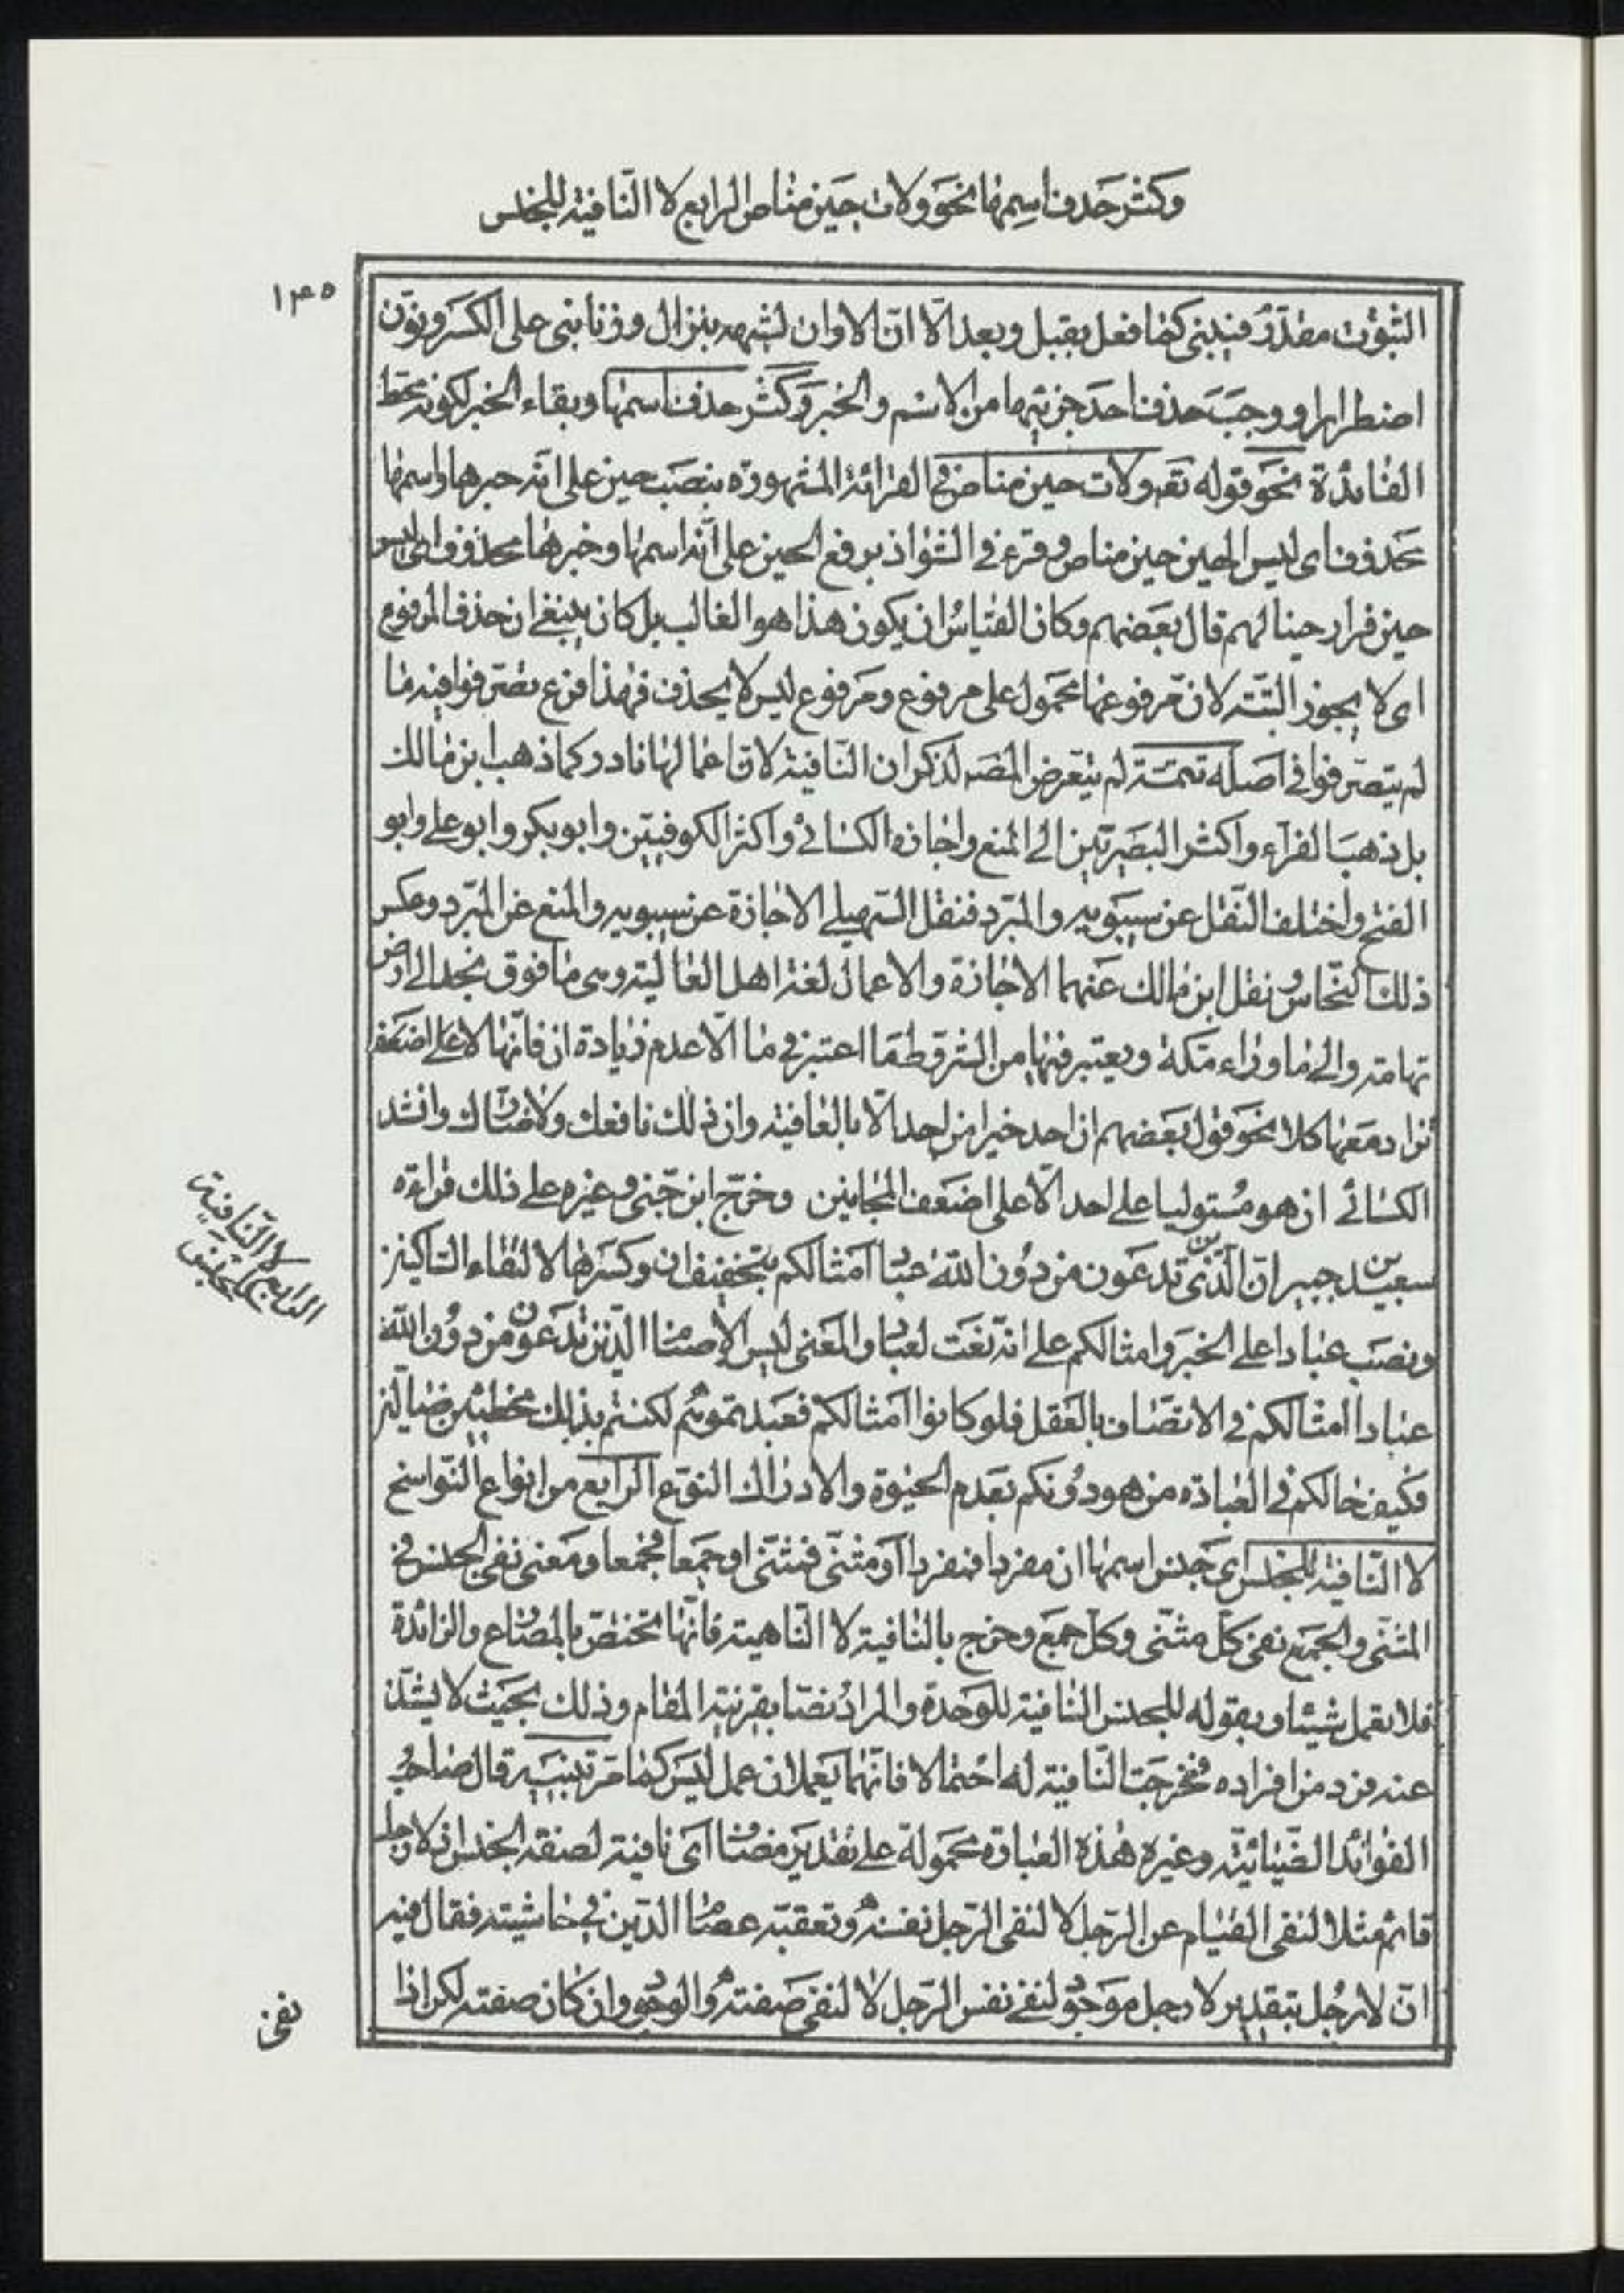 وكثر حذف اسمها نحو ولات حين مناص الرابع لا النّافية للجنس
١٣٥
الثبوت مقدّر فبنى كما فعل بقبل وبعد الّا انّ الاوان لشبهه بنزال وزنا بنى على الكسر ونوّن
اضطرارا ووجب حذف احد جزئيها من الاسم والخبر وكثر حذف اسمها وبقاء الخبر لكونه محط
الفائدة نحو قوله تعه ولات حين مناص في القرائة المشهورة بنصب حين على انّه خبرها واسمها
محذوف اى ليس الحين حين مناص وقرء في الشواذ برفع الحين على انّه اسمها وخبرها محذوف اى ليس
حين فرار حينا لهم قال بعضهم وكان القياس ان يكون هذا هو الغالب بل كان ينبغي ان حذف المرفوع
اى لا يجوز البتّه لانّ مرفوعها محمول على مرفوع ومرفوع ليس لا يحذف فهذا فرع تصرّفوا فيه ما
لم يتصرّفوا في اصله تتمّة لم يتعرض المصه لذكر ان النّافية لانّ اعمالها نادر كما ذهب ابن مالك
بل ذهب الفرّاء واكثر البصريّين الى المنع واجازه الكسائي واكثر الكوفيّين وابو بكر وابو على وابو
الفتح واختلف النّقل عن سيبويه والمبرّد فنقل السّهيلي الاجازة عن سيبويه والمنع عن المبّرد وعكس
ذلك النّحاس ونقل ابن مالك عنهما الاجازة والاعمال لغة اهل العالية وهى ما فوق نجد الى ارض
تهامة والى ما وراء مكة ويعتبر فيها من الشروط ما اعتبر في ما الّا عدم زيادة ان فانّها لا
تزاد معها كلا نحو قول بعضهم ان احد خيرا من احد الّا بالعافية وان ذلك نافعك ولا ضارّك وانشد
الكسائي ان هو مستوليا على احد الّا على اضعف المجانين وخرّج ابن جنّى وغيره على ذلك قراءة
سعيد بن جبير ان الّذين تدعون من دون الله عبادا امثالكم بتخفيف ان وكسرها لالتقاء الساكنين
ونصب عبادا على الخبر وامثالكم على انّه نعت لعباد والمعنى ليس الاصنام الّذين تدعون من دون الله
عبادا امثالكم في الاتصاف بالعقل فلو كانوا امثالكم فعبدتموهم لكنتم بذلك مخطئين ضالّين
فكيف حالكم في العبادة من هو دونكم بعدم الحيوة والادراك النوع الرابع من انواع النّواسخ
لا النّافية للجنس اى جنس اسمها ان مفردا فمفردا او مثنّى فمثنّى او جمعا فجمعا ومعنى نفى الجنس في
المثنّى والجمع نفى كلّ مثنّى وكلّ جمع وخرج بالنافية لا النّاهية فانّها تختصّ بالمضارع والزائدة
فلا تعمل شيئا وبقوله للجنس النافية للوحدة والمراد نصّا بقرينة المقام وذلك بحيث لا يشذّ
عنه فرد من افراده فخرجت النّافية له احتمالا فانّهما يعملان عمل ليس كما مرّ تنبيه قال صاحب
الفوائد الضّيائيّة وغيره هذه العبارة محمولة على تقدير مضاف اى نافية لصفة الجنس اذ لا رجل
قائم مثلا لنفى القيام عن الرّجل لا لنفى الرّجل نفسه وتعقبه عصام الدّين في حاشيته فقال فيه
انّ لا رجل بتقدير لا رجل موجود لنفى نفس الرّجل لا لنفى صفته والوجود وان كان صفته لكن اذا
الرابع لا النّافية
للجنس
نفى